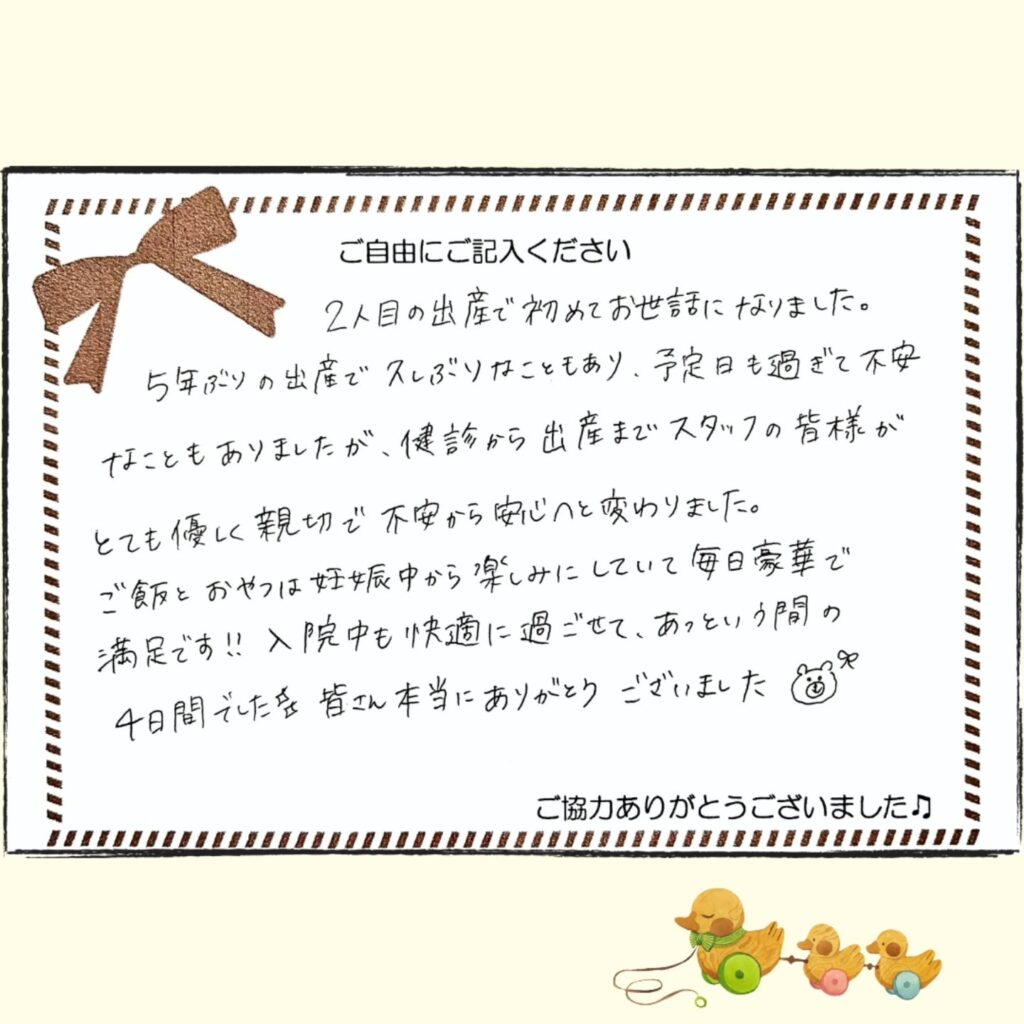 ご自由にご記入ください
2人目の出産で初めてお世話になりました。
5年ぶりの出産で久しぶりなこともあり、予定日も過ぎて不安
なこともありましたが、健診から出産までスタッフの皆様が
とても優しく親切で不安から安心へと変わりました。
ご飯とおやつは妊娠中から楽しみにしていて毎日豪華で
満足です!! 入院中も快適に過ごせて、あっという間の
4日間でした☆ 皆さん本当にありがとうございました
ご協力ありがとうございました♫